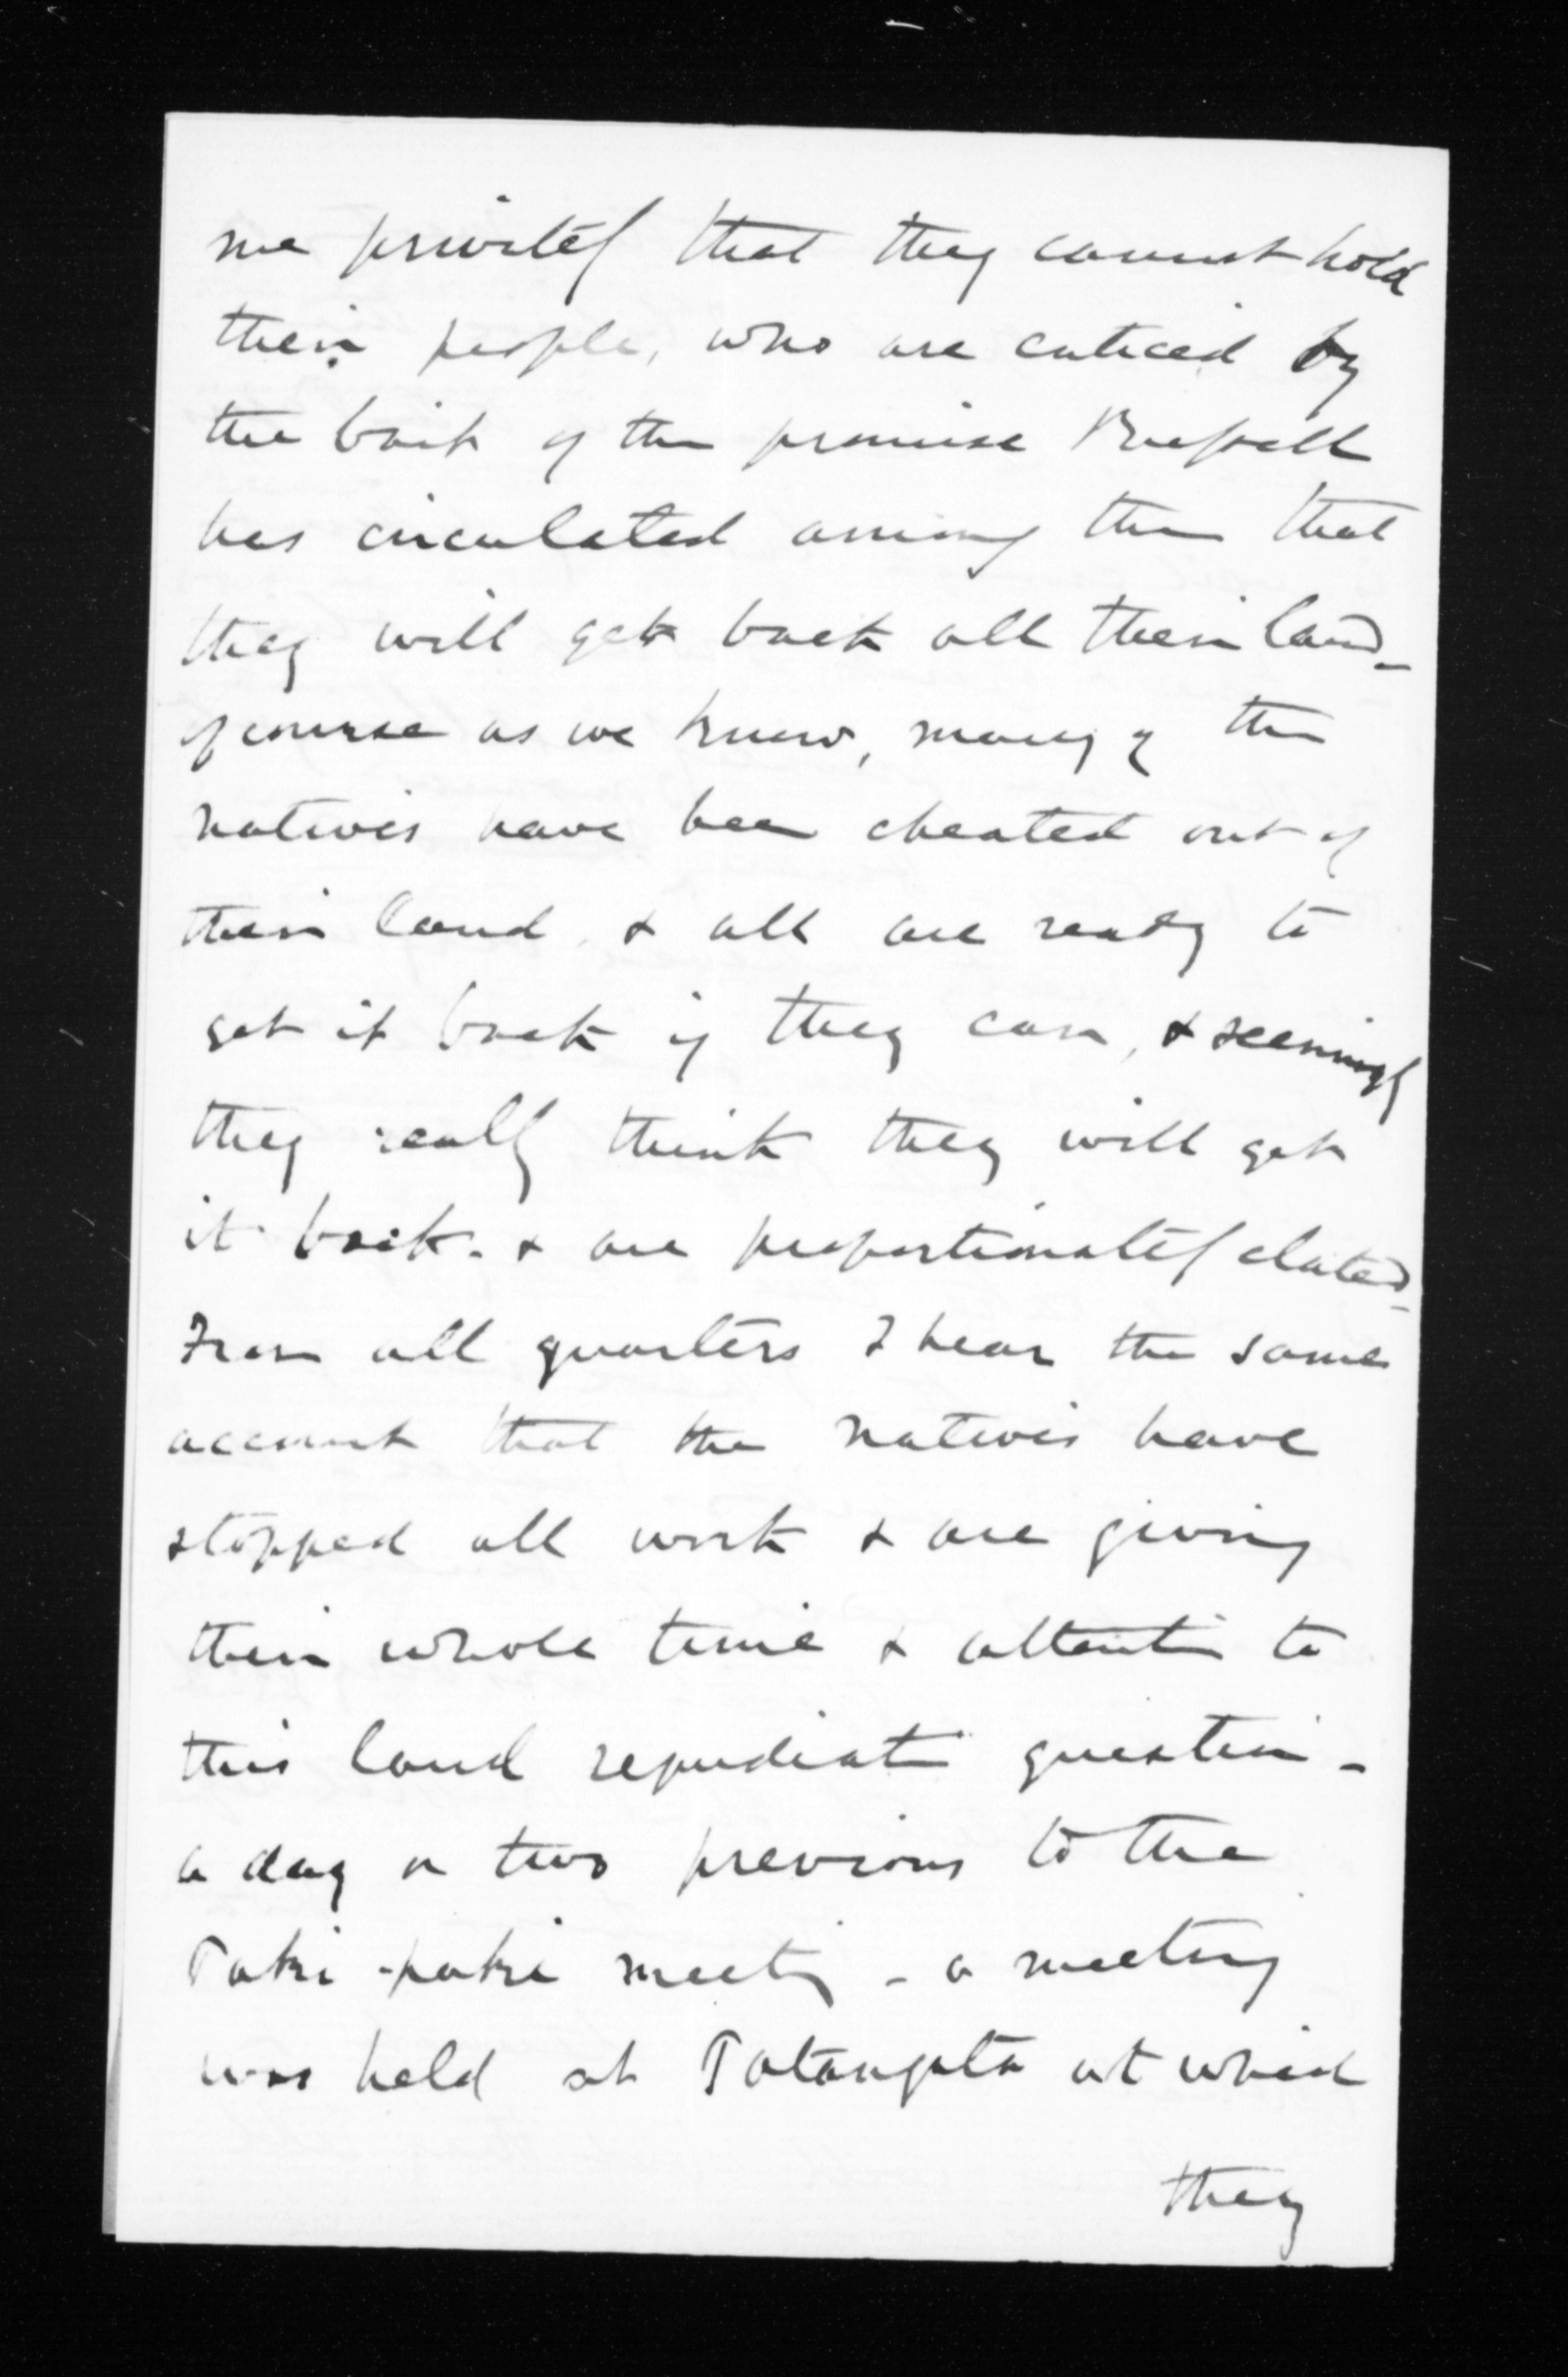 me privately that they cannot hold
their people, who are enticed by
the bait of the promise Russell
has circulated among them that
they will get back all their land -
of course as we know, many of the
natives have been cheated out of
their land, & all are ready to
get it back if they can, & seemingly
they really think they will get
it back - & are proportionately elated -
From all quarters I hear the same
account that the natives have
stopped all work & are giving
their whole time & attention to
this land repudiation question -
a day or two previous to the
Paki-paki meeting - a meeting
was held at Patangata at which
they